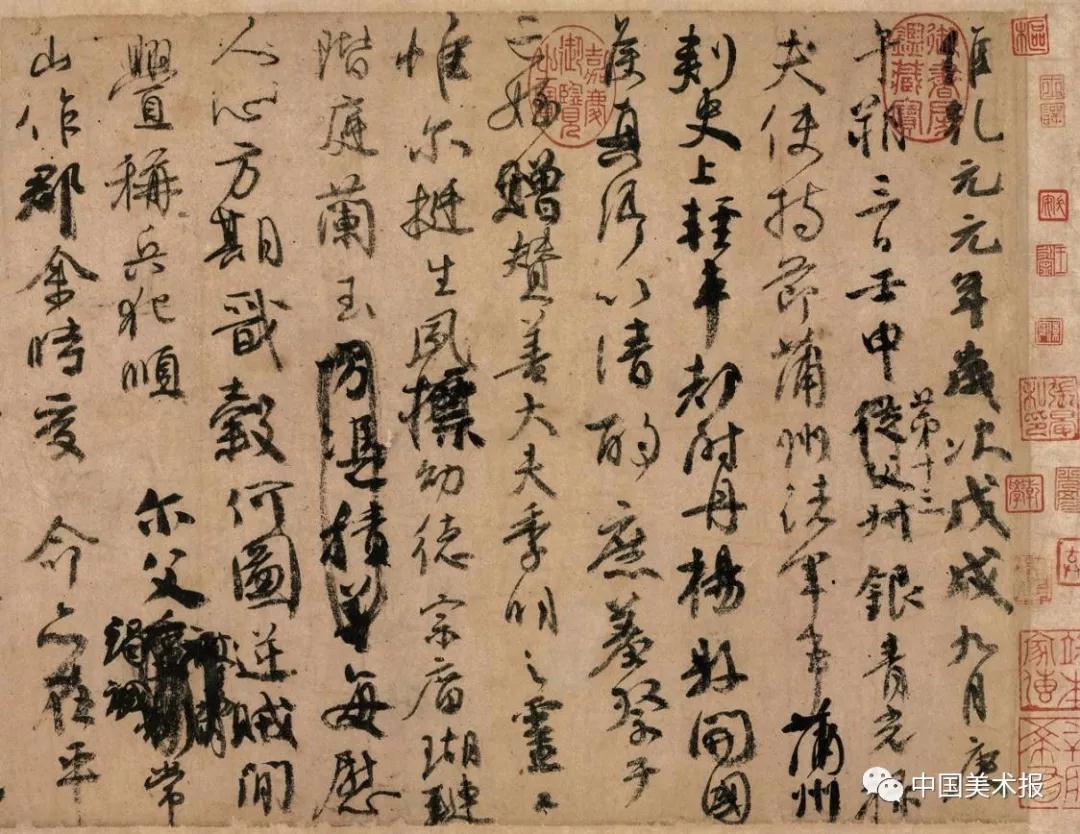 維乾元元年歲次戊戌九月庚
午朔三日壬申第十三從父叔銀青光祿
夫使持節蒲州諸軍事蒲州
刺史上輕車都尉丹楊縣開國
侯真卿以清酌庶羞祭于
亡姪贈贊善大夫季明之靈曰
惟尔挺生夙標幼德宗廟瑚璉
階庭蘭玉方憑積善每慰
人心方期戩穀何圖逆賊閒
釁稱兵犯順尔父竭誠常
山作郡余時受命亦在平
御書房鑑藏寶
嘉慶御覽之寶
中国美术报